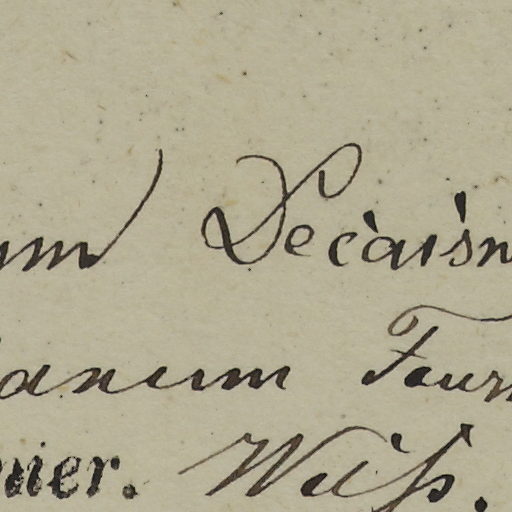 um Decaisn
anum Fourn
nier. Wiss.